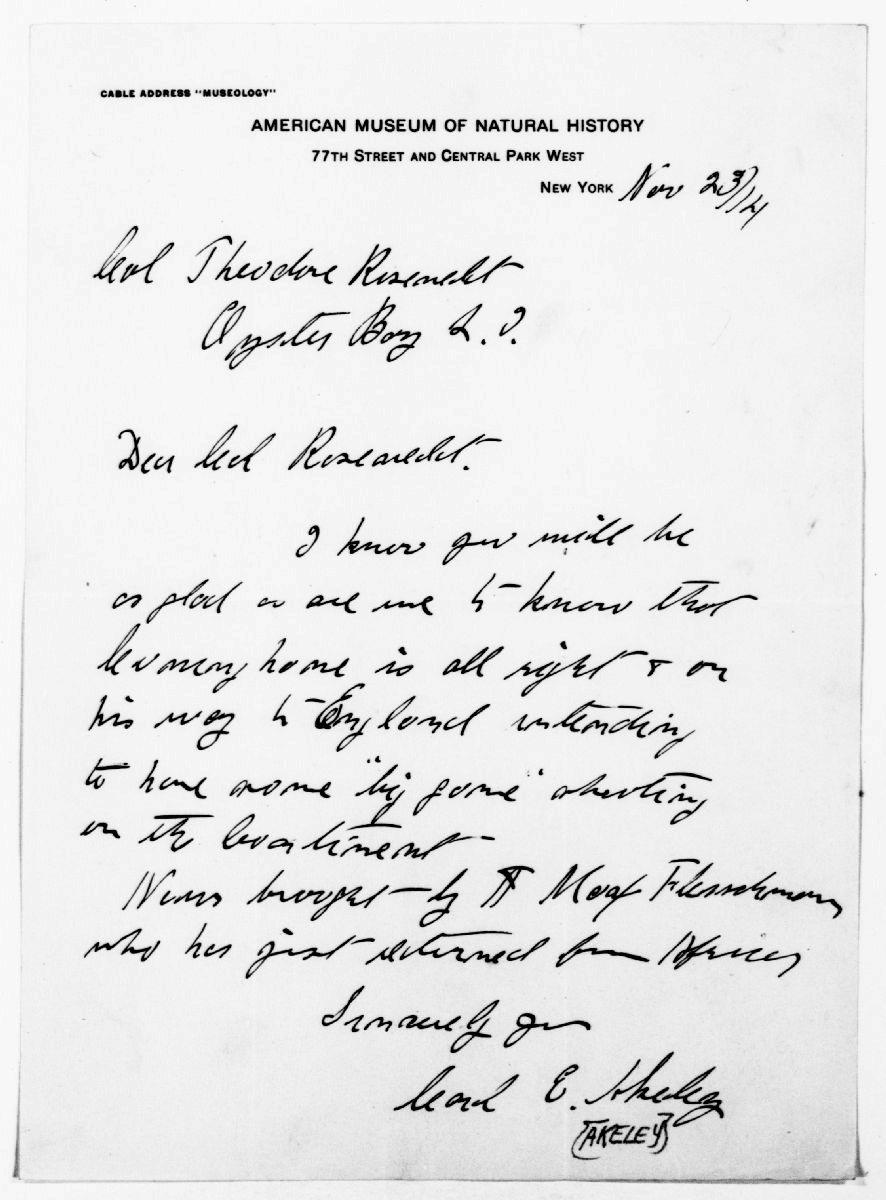 CABLE ADDRESS "MUSEOLOGY"
AMERICAN MUSEUM OF NATURAL HISTORY
77TH STREET AND CENTRAL PARK WEST
NEW YORK Nov 23/14
Col Theodore Roosevelt
Oyster Bay L.I.
Dear Col Roosevelt.
I know you will be
as glad as are we to know that
Cuninghame is all right & on
his way to England intending
to have some "big game" shooting
on the Continent
News brought by Max Fleischmann
who has just returned from Africa
Sincerely yours
Carl E. Akeley
[AKELEY]